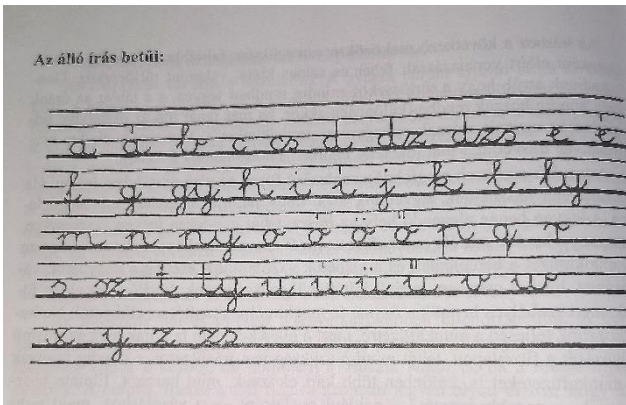 Az álló írás betűi:
a á b c cs d dz dzs e é
f g gy h i í j k l ly
m n ny o ó ö ő p q r
s sz t ty u ú ü ű v w
x y z zs